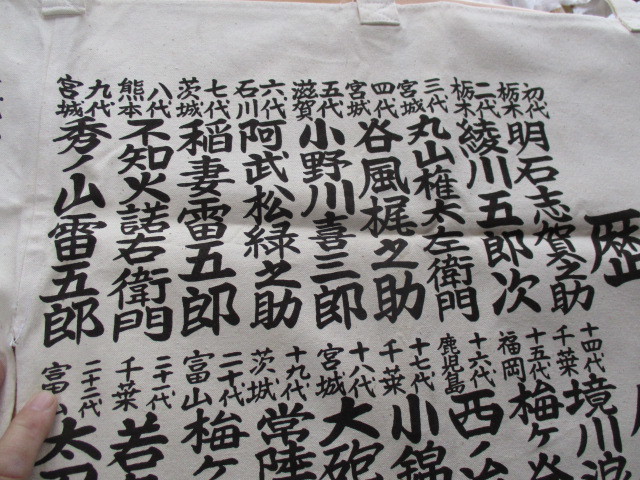 歴
初代 栃木 明石志賀之助
二代 栃木 綾川五郎次
三代 宮城 丸山権太左衛門
四代 宮城 谷風梶之助
五代 滋賀 小野川喜三郎
六代 石川 阿武松緑之助
七代 茨城 稲妻雷五郎
八代 熊本 不知火諾右衛門
九代 宮城 秀ノ山雷五郎
十四代 千葉 境川浪
十五代 福岡 梅ヶ谷
十六代 鹿児島 西ノ
十七代 千葉 小錦
十八代 宮城 大砲
十九代 茨城 常陸
二十代 富山 梅ヶ
二十一代 千葉 若
二十二代 富山 太刀